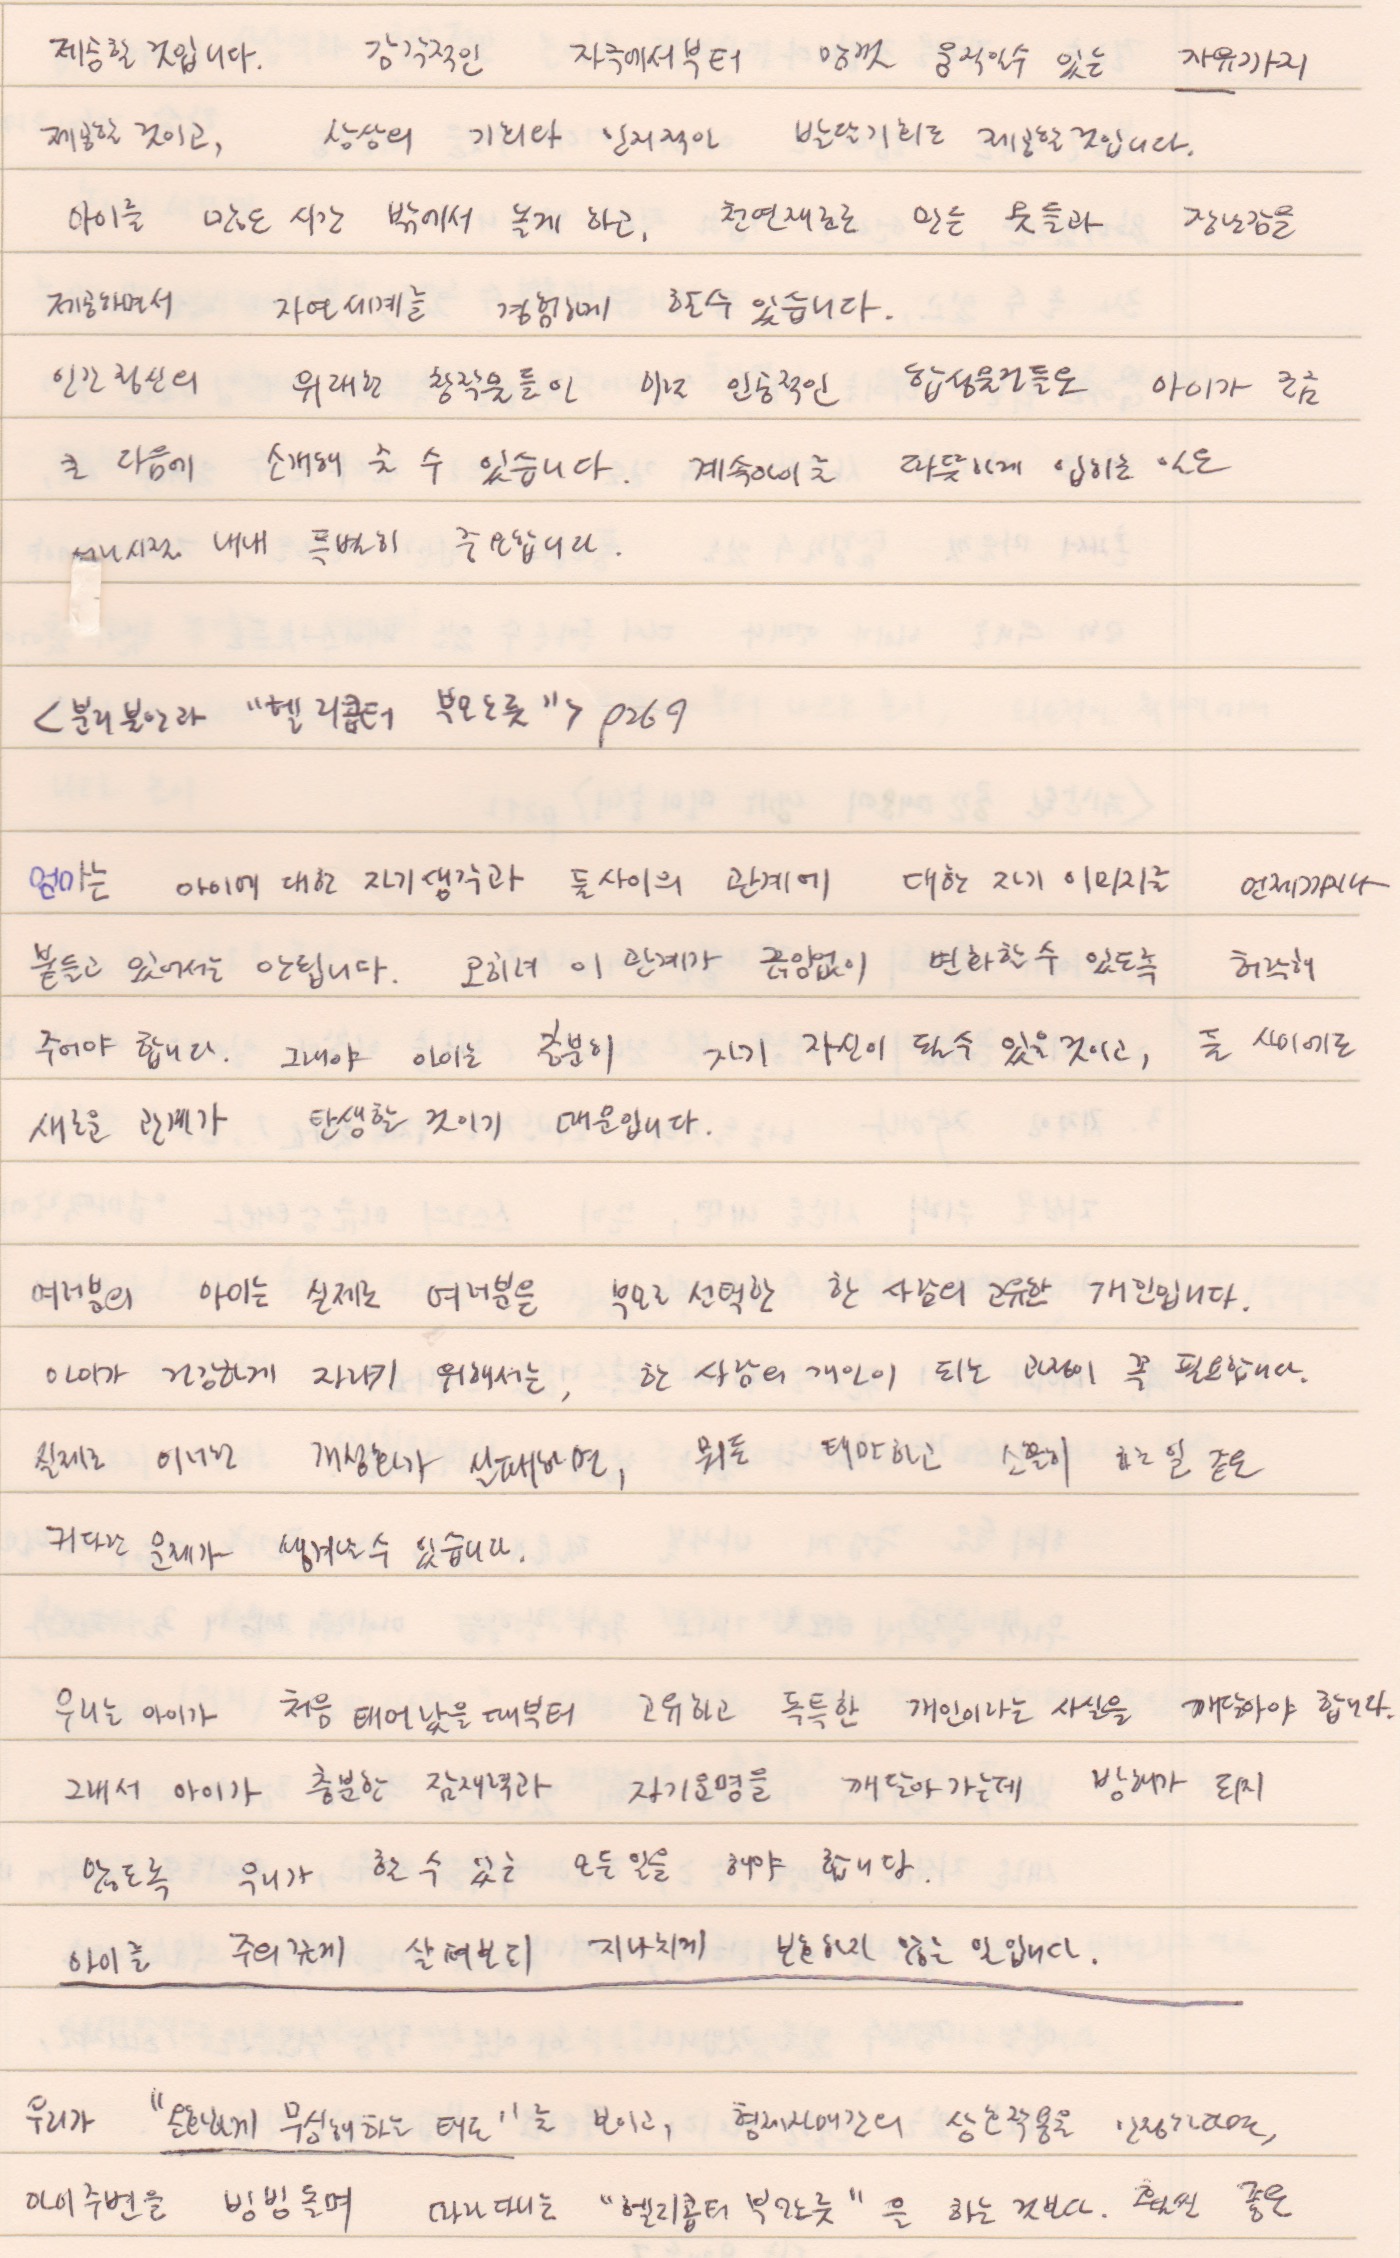 제공할 것입니다. 감각적인 자극에서부터 맘껏 움직일수 있는 자유까지
제공할 것이고, 상상의 기회와 인지적인 발달기회도 제공할것입니다.
아이를 많은 시간 밖에서 놀게 하고, 천연재료로 만든 옷들과 장난감을
제공하면서 자연세계를 경험하게 할수 있습니다.
인간정신의 위대한 창작물들인 인공적인 합성물건들은 아이가 조금
큰 다음에 소개해 줄 수 있습니다. 계속아이를 따뜻하게 입히는 일은
내내 특별히 중요합니다.
<분리불안과 "헬리콥터 부모노릇"> p269
엄마는 아이에 대한 자기생각과 둘사이의 관계에 대한 자기 이미지를 언제까지나
붙들고 있어서는 안됩니다. 오히려 이 관계가 끊임없이 변화할수 있도록 허락해
주어야 합니다. 그래야 아이는 충분히 자기 자신이 될수 있을것이고, 둘 사이에도
새로운 관계가 탄생할 것이기 때문입니다.
여러분의 아이는 실제로 여러분을 부모로 선택한 한 사람의 고유한 개인입니다.
아이가 건강하게 자라기 위해서는, 한 사람의 개인이 되는 과정이 꼭 필요합니다.
실제로 이러한 개성화가 실패하면, 뭐든 태만하고 소홀히 하는 일 같은
커다란 문제가 생겨날수 있습니다.
우리는 아이가 처음 태어났을때부터 고유하고 독특한 개인이라는 사실을 깨달아야 합니다.
그래서 아이가 충분한 잠재력과 자기운명을 깨달아 가는데 방해가 되지
않도록 우리가 할 수 있는 모든일을 해야 합니다.
아이를 주의깊게 살펴보되 지나치게 보호하지 않는 일입니다.
우리가 "온화하게 무심해하는 태도"를 보이고, 형제자매간의 상호작용을 인정한다면,
아이주변을 빙빙돌며 따라다니는 "헬리콥터 부모노릇"을 하는것보다. 훨씬 좋은